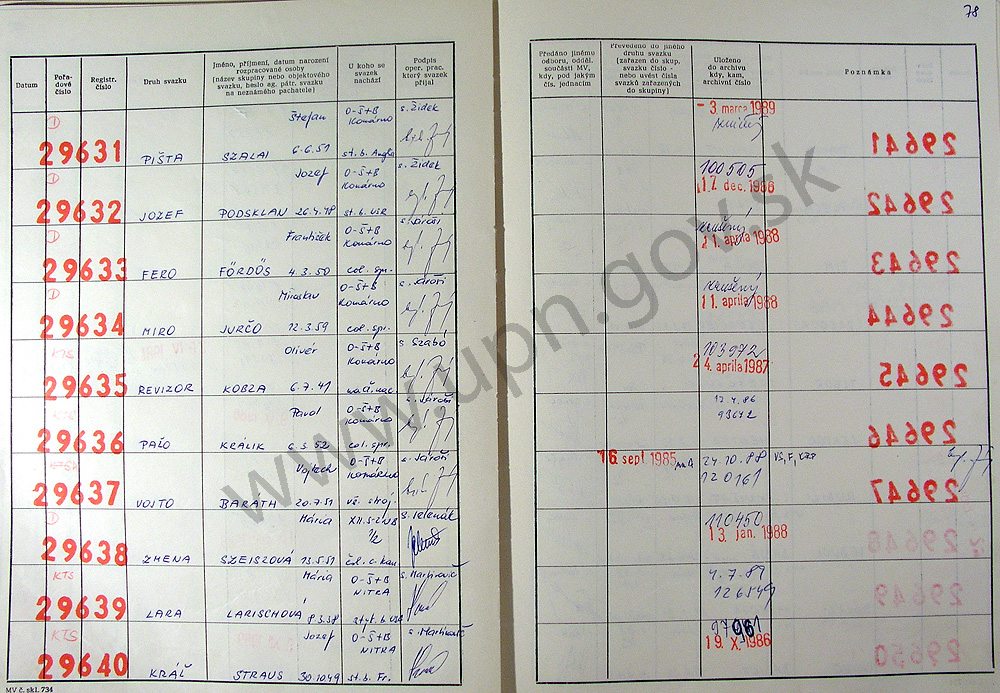 78
Datum
Pořadové číslo
Registr. číslo
Druh svazku
Jméno, příjmení, datum narození
rozpracované osoby
(název skupiny nebo objektového
svazku, heslo ag. pátr. svazku
na neznámého pachatele)
U koho se
svazek
nachází
Podpis
oper. prac.
který svazek
přijal
Předáno jinému
odboru, odděl.
součásti MV,
kdy, pod jakým
čís. jednacím
Převedeno do jiného
druhu svazku
(zařazen do skup.
svazku číslo -
nebo uvést čísla
svazků zařazených
do skupiny)
Uloženo
do archivu
kdy, kam,
archivní číslo
Poznámka
D
Štefan
O-ŠtB
Komárno
s. Židek
29631 PIŠTA SZALAI 6.6.51
- 3. marca 1989
29641
D
Jozef
O-ŠtB
Komárno
s. Židek
29632 JOZEF PODSKLAN 26.4.48 st. b. USA
100505
17. dec. 1986
29642
D
František
O-ŠtB
Komárno
29633 FERO FÖRDÖS 4.3.50 col. spr.
zrušený
21. apríla 1988
29643
D
Miroslav
O-ŠtB
Komárno
29634 MIRO JURČO 12.3.59 col. spr.
zrušený
11. apríla 1988
29644
KTS
Olivér
O-ŠtB
Komárno
s. Szabó
29635 REVIZOR KOBZA 6.7.41
103972
24. apríla 1987
29645
Pavol
O-ŠtB
Komárno
29636 PAĽO KRÁLIK 6.5.52 col. spr.
17.4.86
93672
29646
Vojtech
O-ŠtB
Komárno
29637 VOJTO BARATH 20.7.51
16. sept. 1985
24.10.88
120161
29647
D
Mária
29638 ZMENA SZEISZOVÁ 13.5.51
110450
13. jan. 1988
29648
KTS
Mária
O-ŠtB
NITRA
29639 LARA LARISCHOVÁ 8.3.38
4.7.89
126549
29649
KTS
Jozef
O-ŠtB
NITRA
29640 KRÁĽ STRAUS 30.10.49 st. b. Fr.
19. X. 1986
29650
MV č. skl. 734
www.upn.gov.sk